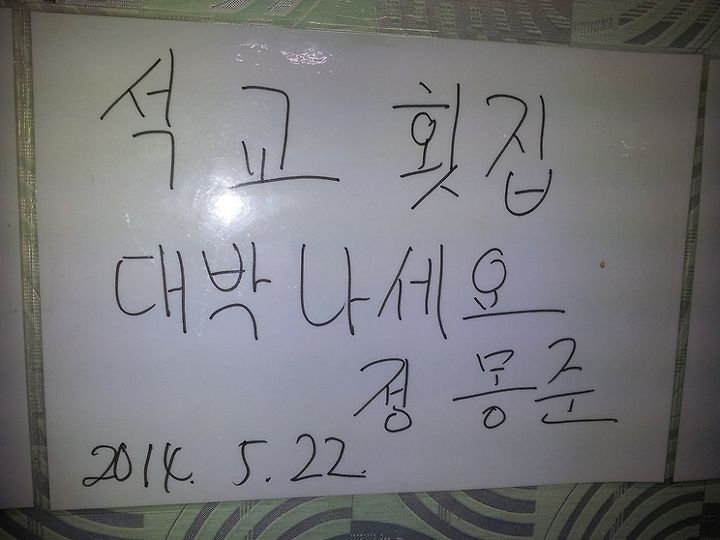 석교 횟집
대박 나세요
정몽준
2014. 5. 22.